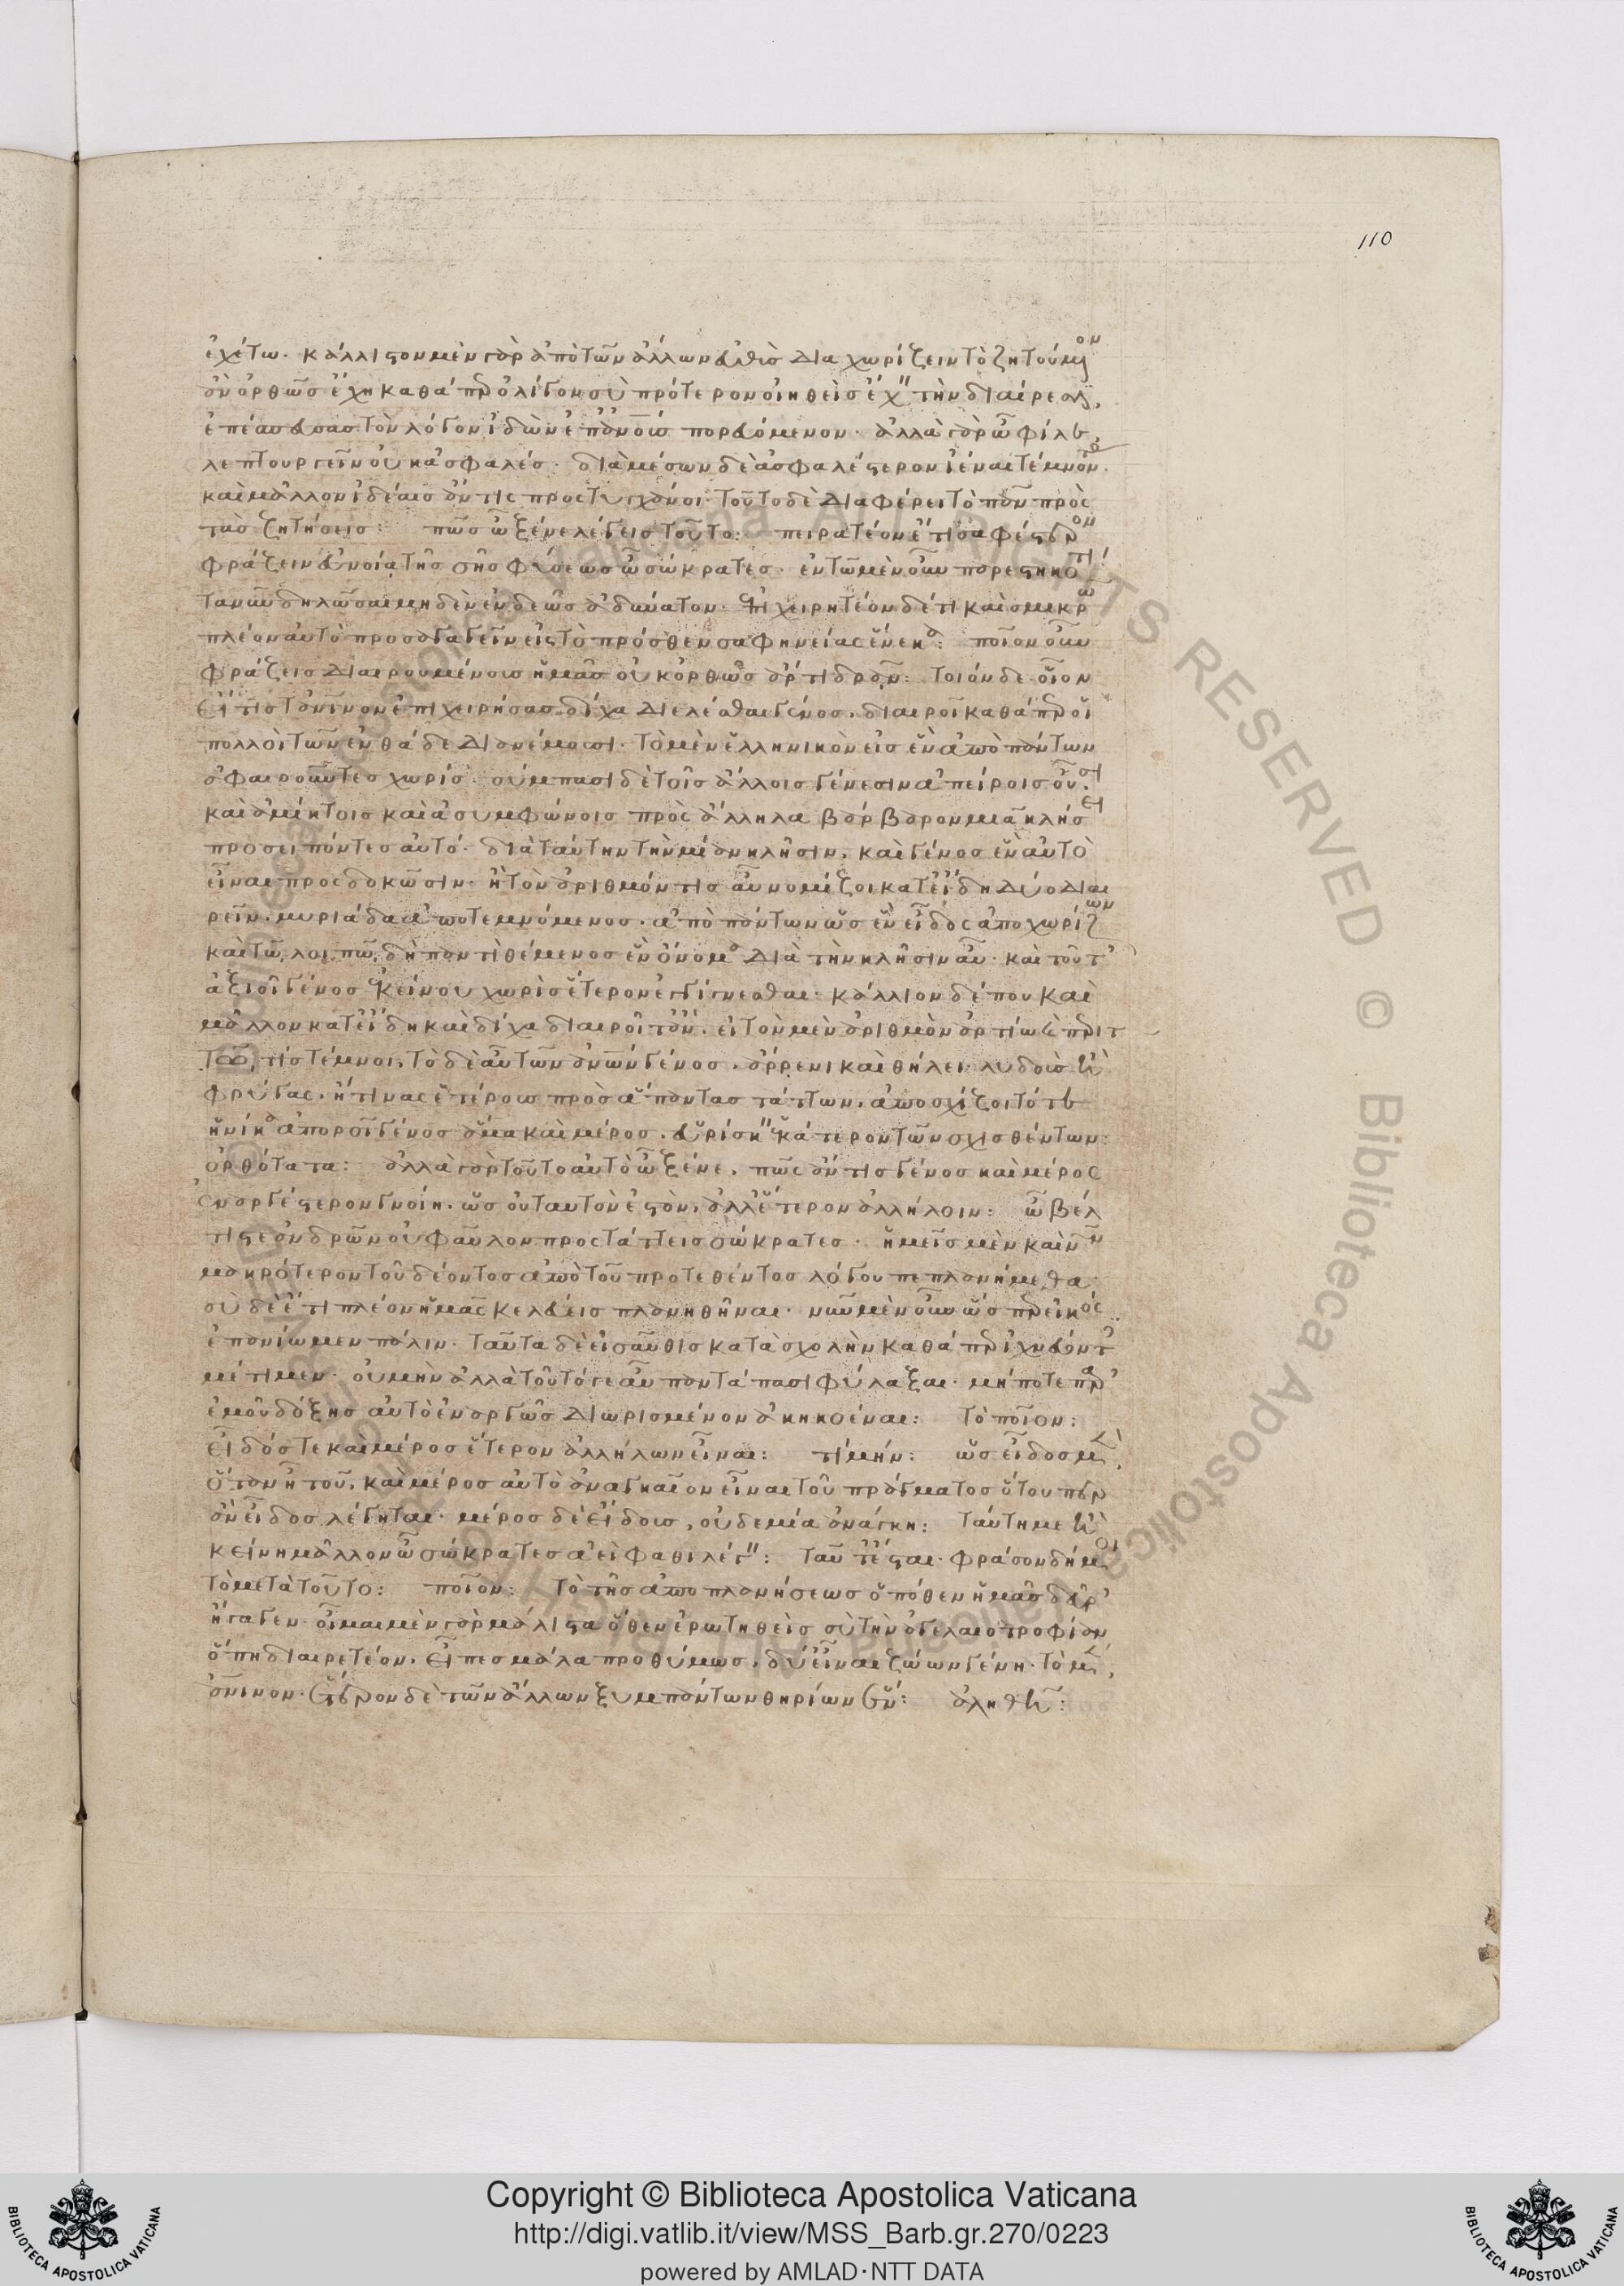 110
ἐχέτω· κάλλιστον μὲν γὰρ ἀπὸ τῶν ἄλλων εὐθὺς διαχωρίζειν τὸ ζητούμενον
ἂν ὀρθῶς ἔχῃ καθάπερ ὀλίγον σὺ πρότερον οἰηθεὶς ἔχειν τὴν διαίρεσιν,
ἐπέσπευσας τὸν λόγον ἰδὼν ἐπ' ἀνθρώποις πορευόμενον· ἀλλὰ γὰρ ὦ φίλε
λεπτουργεῖν οὐκ ἀσφαλές· διὰ μέσων δὲ ἀσφαλέστερον ἰέναι τέμνοντας·
καὶ μᾶλλον ἰδέαις ἄν τις προστυγχάνοι· τοῦτο δὲ διαφέρει τὸ πᾶν πρὸς
τὰς ζητήσεις: πῶς ὦ ξένε λέγεις τοῦτο: πειρατέον ἔτι σαφέστερον
φράζειν εὐνοίᾳ τῆς σῆς φύσεως ὦ σώκρατες· ἐν τῷ μὲν οὖν παρεστηκότι
τανῦν δηλῶσαι μηδὲν ἐνδεῶς ἀδύνατον· ἐπιχειρητέον δέ τι καὶ σμικρῷ
πλέον αὐτὸ προσαγαγεῖν εἰς τὸ πρόσθεν σαφηνείας ἕνεκα: ποῖον οὖν
φράζεις διαιρουμένους ἡμᾶς οὐκ ὀρθῶς ἄρτι δρᾶν: τοιόνδε· οἷον
εἴ τις τἀνθρώπινον ἐπιχειρήσας δίχα διελέσθαι γένος, διαιροῖ καθάπερ οἱ
πολλοὶ τῶν ἐνθάδε διανέμουσι· τὸ μὲν ἑλληνικὸν εἰς ἓν ἀπὸ πάντων
ἀφαιροῦντες χωρίς· σύμπασι δὲ τοῖς ἄλλοις γένεσιν ἀπείροις οὖσι
καὶ ἀμίκτοις καὶ ἀσυμφώνοις πρὸς ἄλληλα βάρβαρον μιᾷ κλήσει
προσειπόντες αὐτό· διὰ ταύτην τὴν μίαν κλῆσιν, καὶ γένος ἓν αὐτὸ
εἶναι προσδοκῶσιν· ἢ τὸν ἀριθμόν τις αὖ νομίζοι κατ' εἴδη δύο διαι
ρεῖν, μυριάδα ἀποτεμνόμενος, ἀπὸ πάντων ὡς ἓν εἶδος ἀποχωρίζων
καὶ τῷ λοιπῷ δὴ παντὶ θέμενος ἓν ὄνομα διὰ τὴν κλῆσιν αὖ· καὶ τοῦτ'
ἀξιοῖ γένος ἐκείνου χωρὶς ἕτερον ἓν γίγνεσθαι· κάλλιον δέ που καὶ
μᾶλλον κατ' εἴδη καὶ δίχα διαιροῖτ' ἄν, εἰ τὸν μὲν ἀριθμὸν ἀρτίῳ καὶ περιτ
τῷ τις τέμνοι, τὸ δὲ αὖ τῶν ἀνθρώπων γένος, ἄρρενι καὶ θήλει· λυδοὺς δὲ ἢ
φρύγας, ἤ τινας ἑτέρους πρὸς ἅπαντας τάττων, ἀποσχίζοι τότε
ἡνίκα ἀποροῖ γένος ἅμα καὶ μέρος, εὑρίσκειν ἑκάτερον τῶν σχισθέντων:
ὀρθότατα: ἀλλὰ γὰρ τοῦτο αὐτὸ ὦ ξένε, πῶς ἄν τις γένος καὶ μέρος
ἐναργέστερον γνοίη, ὡς οὐ ταυτὸν ἐστὸν, ἀλλ' ἕτερον ἀλλήλοιν: ὦ βέλ
τιστε ἀνδρῶν οὐ φαῦλον προστάττεις σώκρατες· ἡμεῖς μὲν καὶ νῦν
μακρότερον τοῦ δέοντος ἀπὸ τοῦ προτεθέντος λόγου πεπλανήμεθα·
σὺ δὲ ἔτι πλέον ἡμᾶς κελεύεις πλανηθῆναι· νῦν μὲν οὖν ὥσπερ εἰκός
ἐπανίωμεν πάλιν· ταῦτα δὲ εἰσαῦθις κατὰ σχολὴν καθάπερ ἰχνεύοντες
μέτιμεν· οὐ μὴν ἀλλὰ τοῦτό γε αὖ παντάπασι φύλαξαι· μήποτε παρ'
ἐμοῦ δόξῃς αὐτὸ ἐναργῶς διωρισμένον ἀκηκοέναι: τὸ ποῖον:
εἶδός τε καὶ μέρος ἕτερον ἀλλήλων εἶναι: τί μήν: ὡς εἶδος μὲν
ὅταν ᾖ του, καὶ μέρος αὐτὸ ἀναγκαῖον εἶναι τοῦ πράγματος ὅτου περ
ἂν εἶδος λέγηται· μέρος δὲ εἶδους, οὐδεμία ἀνάγκη: ταύτῃ με ἢ
κείνῃ μᾶλλον ὦ σώκρατες ἀεὶ φάθι λέγειν: ταῦτ' ἔσται· φράσον δή μοι
τὸ μετὰ τοῦτο: ποῖον: τὸ τῆς ἀποπλανήσεως ὁπόθεν ἡμᾶς δεῦρ'
ἤγαγεν· οἶμαι μὲν γὰρ μάλιστα ὅθεν ἐρωτηθεὶς σὺ τὴν ἀγελαιοτροφίαν
ὅπῃ διαιρετέον, εἶπες μάλα προθύμως, δύ' εἶναι ζώων γένη· τὸ μὲν
ἀνθρώπινον· ἕτερον δὲ τῶν ἄλλων ξυμπάντων θηρίων ἕν: ἀληθῆ:
Copyright © Biblioteca Apostolica Vaticana
http://digi.vatlib.it/view/MSS_Barb.gr.270/0223
powered by AMLAD·NTT DATA
BIBLIOTECA APOSTOLICA VATICANA
BIBLIOTECA APOSTOLICA VATICANA